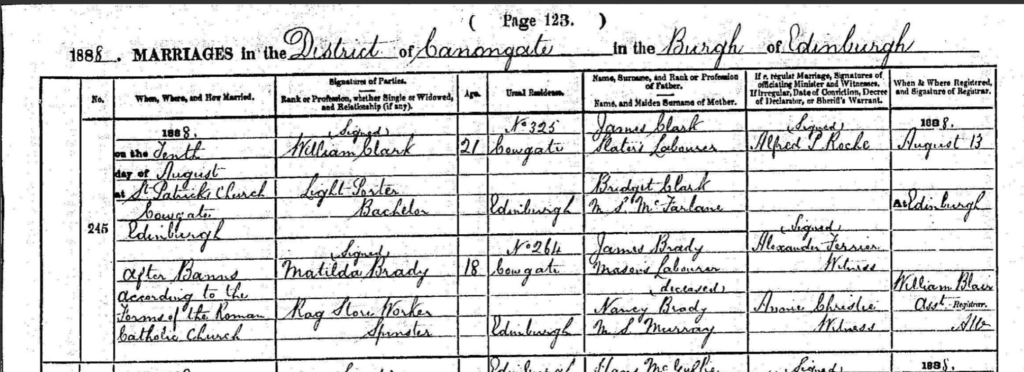 ( Page 123. )
1888. MARRIAGES in the District of Canongate in the Burgh of Edinburgh
No.
When, Where, and How Married.
Signatures of Parties.
Rank or Profession, whether Single or Widowed, and Relationship (if any).
Age.
Usual Residence.
Name, Surname, and Rank or Profession of Father.
Name, and Maiden Surname of Mother.
If a regular Marriage, Signatures of officiating Minister and Witnesses.
If Irregular, Date of Conviction, Decree of Declarator, or Sheriff's Warrant.
When & Where Registered, and Signature of Registrar.
245
1888.
on the Tenth
day of August
at St Patricks Church
Cowgate
Edinburgh
After Banns
according to the
Forms of the Roman
Catholic Church
(Signed)
William Clark
Light Porter
Bachelor
21
No 325
Cowgate
Edinburgh
James Clark
Slater's Labourer
Bridget Clark
M.S. McFarlane
(Signed)
Alfred Roche
1888.
August 13
At Edinburgh
(Signed)
Matilda Brady
Rag Store Worker
Spinster
18
No 264
Cowgate
Edinburgh
James Brady
Mason's Labourer
(deceased)
Nancy Brady
M.S. Murray
(Signed)
Alexander Ferrier
Witness
Annie Christie
Witness
William Blair
Asst. Registrar.
1888.
Signed
Edinburgh